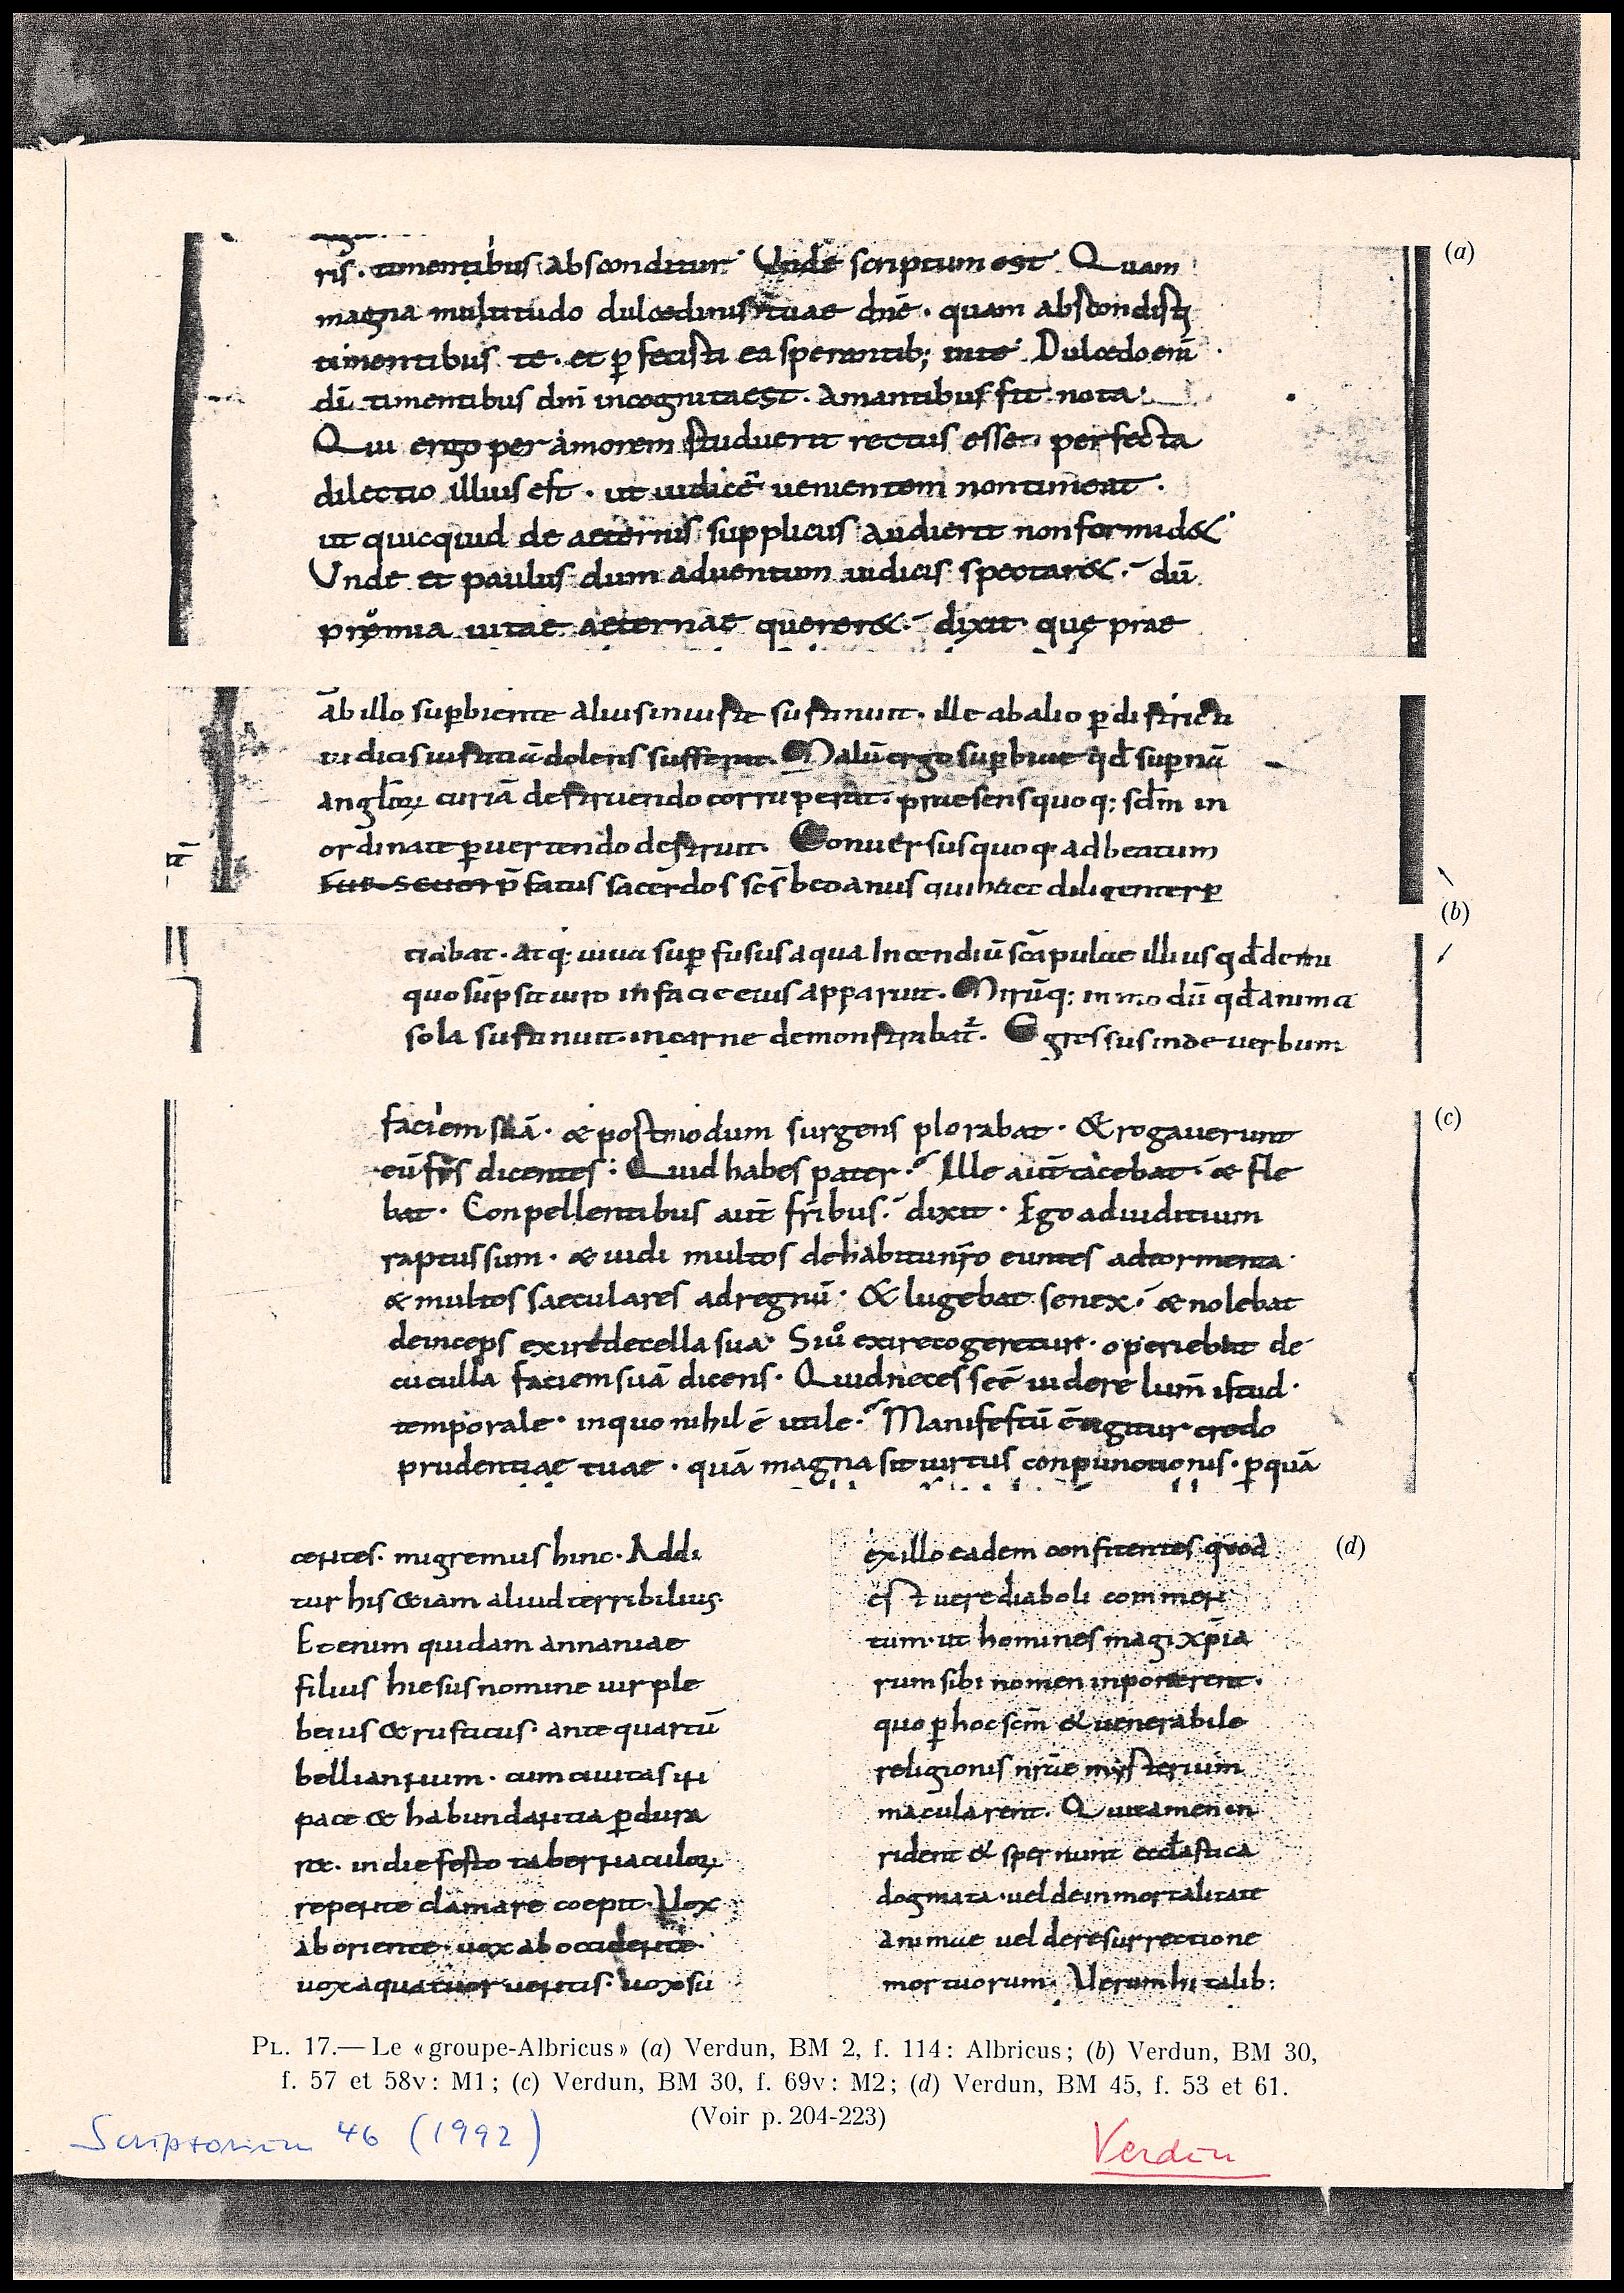 (a)
ris. timentibus absconditur Unde scriptum est Quam
magna multitudo dulcedinis tuae dnē. quam abscondisti
timentibus te. et p̱fecisti ea sperantib; in te. Dulcedo enī
dī timentibus dnī incognita est. Amantibus fit nota.
Qui ergo per amorem studuerit rectus esse. perfecta
dilectio illius est. ut iudicē venientem non timeat.
ut quicquid de aeternis suppliciis audierit non formid&
Unde et paulus dum adventum iudicis spectar&. dū
premia vitae aeternae querer&. dixit quę prae
ab illo sup̱biente alius iniuste sustinuit. ille ab alio p̱ districti
iudicis iustitiā dolens suffert. Malū ergo sup̱biae qd̄ sup̱nā
curiā destruendo corruperat. praesens quoq; in
ordinate p̱vertendo destruit. Conversus quoq; ad beatum
p̄fatus sacerdos scs̄ beoanus qui haec diligenter p̱
(b)
atq; viva sup̱fusus aqua Incendiū scapulae illius qd̄
quo in facie eius apparuit. Mirūq; in modū qd̄ anima
sola sustinuit. in carne demonstrabat. Egressus inde verbum
(c)
faciem suā. & postmodum surgens plorabat. & rogaverunt
eū frs̄ dicentes: Quid habes pater. Ille aut̄ tacebat. & fle
bat. Conpellentibus aut̄ fribus. dixit. Ego ad iuditium
raptus sum. & vidi multos de habitu nr̄o euntes ad tormenta
& multos saeculares ad regnū. & lugebat senex. & nolebat
deinceps exire de cella sua. Si v̊ exire cogeretur. operiebat de
cuculla faciem suā dicens. Quid necesse ē videre lum̄ istud.
temporale. in quo nihil ē utile. Manifestū ē igitur credo
prudentiae tuae. quā magna sit virtus conpunctionis. p̱ quā
(d)
centes. migremus hinc. Addi
tur his &iam aliud terribilius.
Etenim quidam annaniae
filius hiesus nomine vir ple
beius & rusticus. ante quartū
belli annum. cum civitas in
pace & habundantia p̱dura
r&. in die festo tabernaculoꝝ
repente clamare coepit. Vox
ab oriente. vox ab occidente.
vox a quatuor ventis. vox su
ex illo eadem confitentes quod
est vere diaboli commen
tum. ut homines magi xp̄ia
rum sibi nomen inponerent.
quo p̱ hoc scm̄ & venerabile
religionis nrae mysterium
macularent. Qui tamen in
rident & spernunt ecclastica
dogmata. vel de inmortalitate
animae vel de resurrectione
mortuorum. Verum hi talib:
PL. 17.— Le «groupe-Albricus» (a) Verdun, BM 2, f. 114: Albricus; (b) Verdun, BM 30,
f. 57 et 58v: M1; (c) Verdun, BM 30, f. 69v: M2; (d) Verdun, BM 45, f. 53 et 61.
(Voir p. 204-223)
Scriptorium 46 (1992)
Verdun